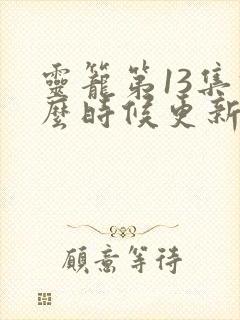 靈籠第13集
麼時候更新
願意等待